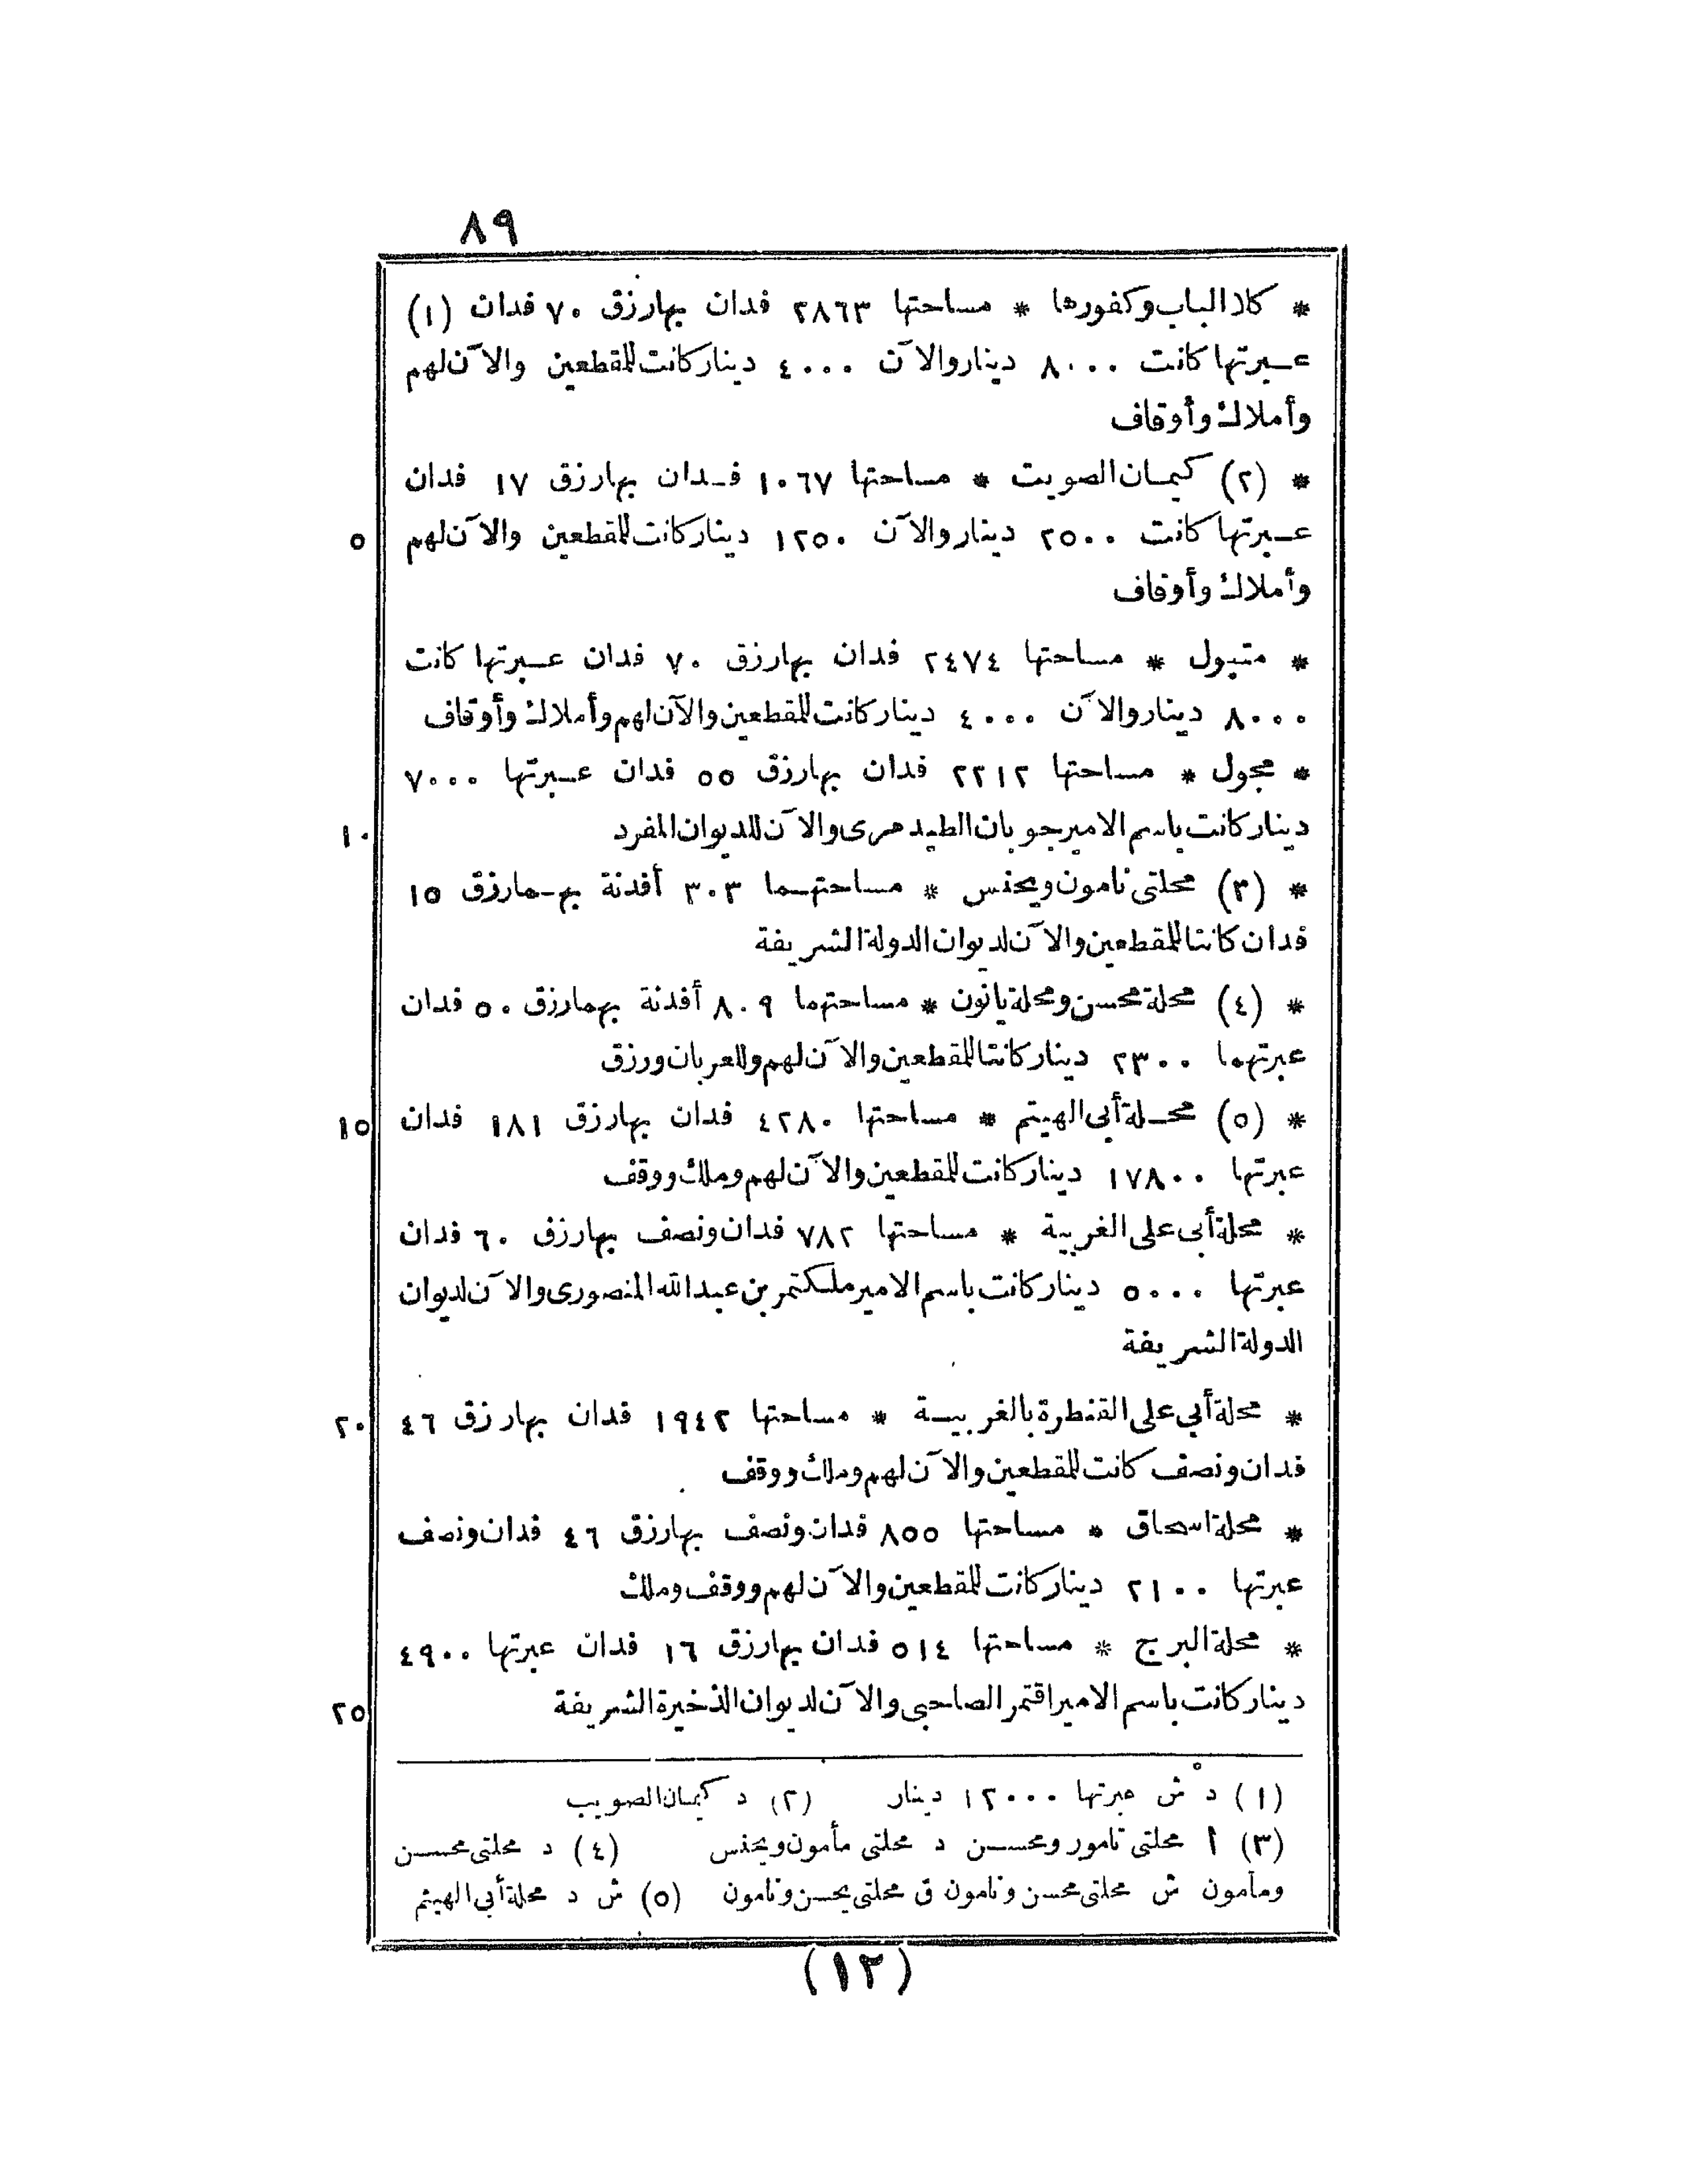 ٨٩
* كلا الباب وكفورها * مساحتها ٢٨٦٣ فدان بها رزق ٧٠ فدان (١)
عبرتها كانت ٨٠٠٠ دينار والآن ٤٠٠٠ دينار كانت للمقطعين والآن لهم
وأملاك وأوقاف
* (٢) كيمان الصويت * مساحتها ١٠٦٧ فدان بها رزق ١٧ فدان
عبرتها كانت ٢٥٠٠ دينار والآن ١٢٥٠ دينار كانت للمقطعين والآن لهم ٥
وأملاك وأوقاف
* متبول * مساحتها ٢٤٧٤ فدان بها رزق ٧٠ فدان عبرتها كانت
٨٠٠٠ دينار والآن ٤٠٠٠ دينار كانت للمقطعين والآن لهم وأملاك وأوقاف
* مجول * مساحتها ٢٢١٢ فدان بها رزق ٥٥ فدان عبرتها ٧٠٠٠
دينار كانت باسم الامير جوبان الطيدمرى والآن للديوان المفرد ١٠
* (٣) محلتى نامون ويحنس * مساحتهما ٣٠٣ أفدنة بهما رزق ١٥
فدان كانتا للمقطعين والآن لديوان الدولة الشريفة
* (٤) محلة محسن ومحلة يانون * مساحتهما ٨٠٩ أفدنة بهما رزق ٥٠ فدان
عبرتهما ٢٣٠٠ دينار كانتا للمقطعين والآن لهم وللعربان ورزق
* (٥) محلة أبى الهيتم * مساحتها ٤٢٨٠ فدان بها رزق ١٨١ فدان ١٥
عبرتها ١٧٨٠٠ دينار كانت للمقطعين والآن لهم وملك ووقف
* محلة أبى على الغربية * مساحتها ٧٨٢ فدان ونصف بها رزق ٦٠ فدان
عبرتها ٥٠٠٠ دينار كانت باسم الامير ملكتمر بن عبد الله المنصورى والآن لديوان
الدولة الشريفة
* محلة أبى على القنطرة بالغربية * مساحتها ١٩٤٢ فدان بها رزق ٤٦ ٢٠
فدان ونصف كانت للمقطعين والآن لهم وملك ووقف
* محلة اسحاق * مساحتها ٨٥٥ فدان ونصف بها رزق ٤٦ فدان ونصف
عبرتها ٢١٠٠ دينار كانت للمقطعين والآن لهم ووقف وملك
* محلة البرج * مساحتها ٥١٤ فدان بها رزق ١٦ فدان عبرتها ٤٩٠٠
دينار كانت باسم الامير اقتمر الصاحبى والآن لديوان الذخيرة الشريفة ٢٥
(١) د ش عبرتها ١٢٠٠٠ دينار (٢) د كيمان الصويب
(٣) أ محلتى نامور ومحسن د محلتى مأمون ويحنس (٤) د محلتى محسن
ومأمون ش محلتى محسن ونامون ق محلتى يحسن ونامون (٥) ش د محلة أبى الهيثم
(١٢)